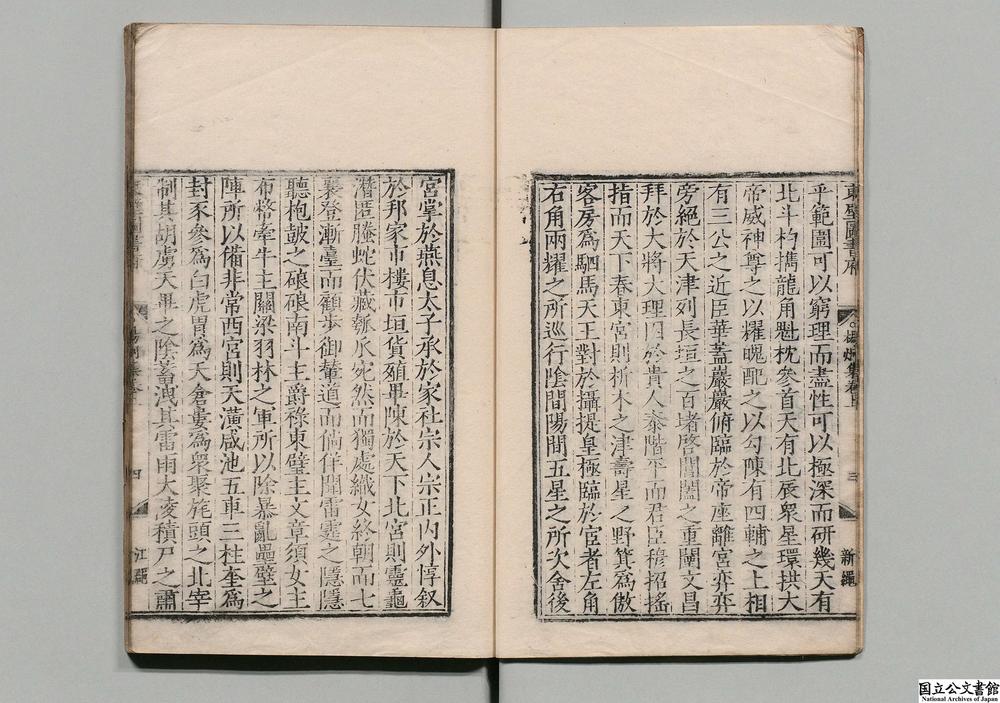 東壁圖書府
楊炯集卷上
三
新疆
乎範圍可以窮理而盡性可以極深而研幾天有
北斗杓攜龍角魁枕參首天有北辰衆星環拱大
帝威神尊之以耀魄配之以勾陳有四輔之上相
有三公之近臣華蓋巖巖俯臨於帝座離宮弈弈
旁絕於天津列長垣之百堵啓閶闔之重闈文昌
拜於大將大理囚於貴人泰階平而君臣穆招搖
指而天下春東宮則析木之津壽星之野箕爲傲
客房爲駟馬天王對於攝提皇極臨於宦者左角
右角兩耀之所巡行陰間陽間五星之所次舍後
宮掌於燕息太子承於冢社宗人宗正內外惇叙
於邦家市樓市垣貨殖畢陳於天下北宮則靈龜
潛匿螣蛇伏藏瓠瓜宛然而獨處織女終朝而七
襄登漸臺而顧步御輦道而徜徉聞雷霆之隱隱
聽枹皷之硠硠南斗主爵祿東璧主文章須女主
布幣牽牛主關梁羽林之軍所以除暴亂壘壁之
陣所以備非常西宮則天潢咸池五車三柱奎爲
封豕參爲白虎胃爲天倉婁爲衆聚旄頭之北宰
制其胡虜天畢之陰蓄洩其雷雨大凌積尸之肅
四
江
国立公文書館
National Archives of Japan